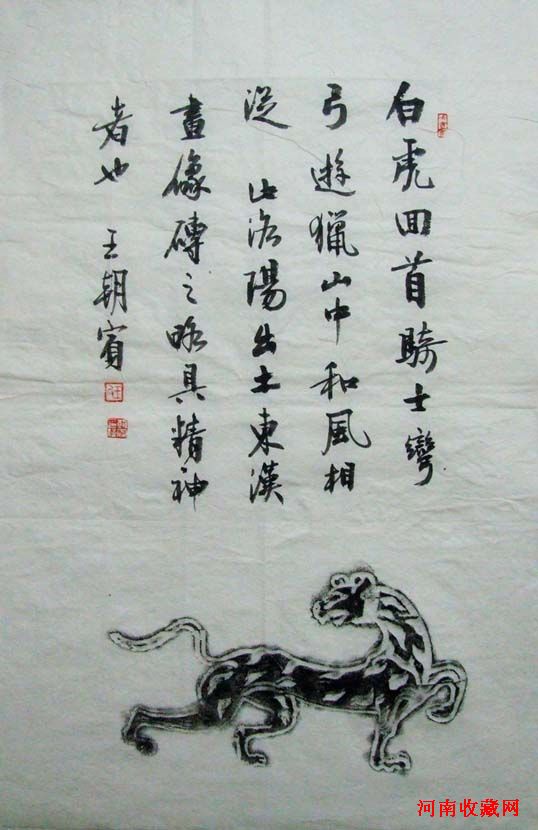 白虎回首騎士彎
弓遊獵山中和風相
從 此洛陽出土東漢
畫像磚之略具精神
者也 王朝賓
河南收藏网